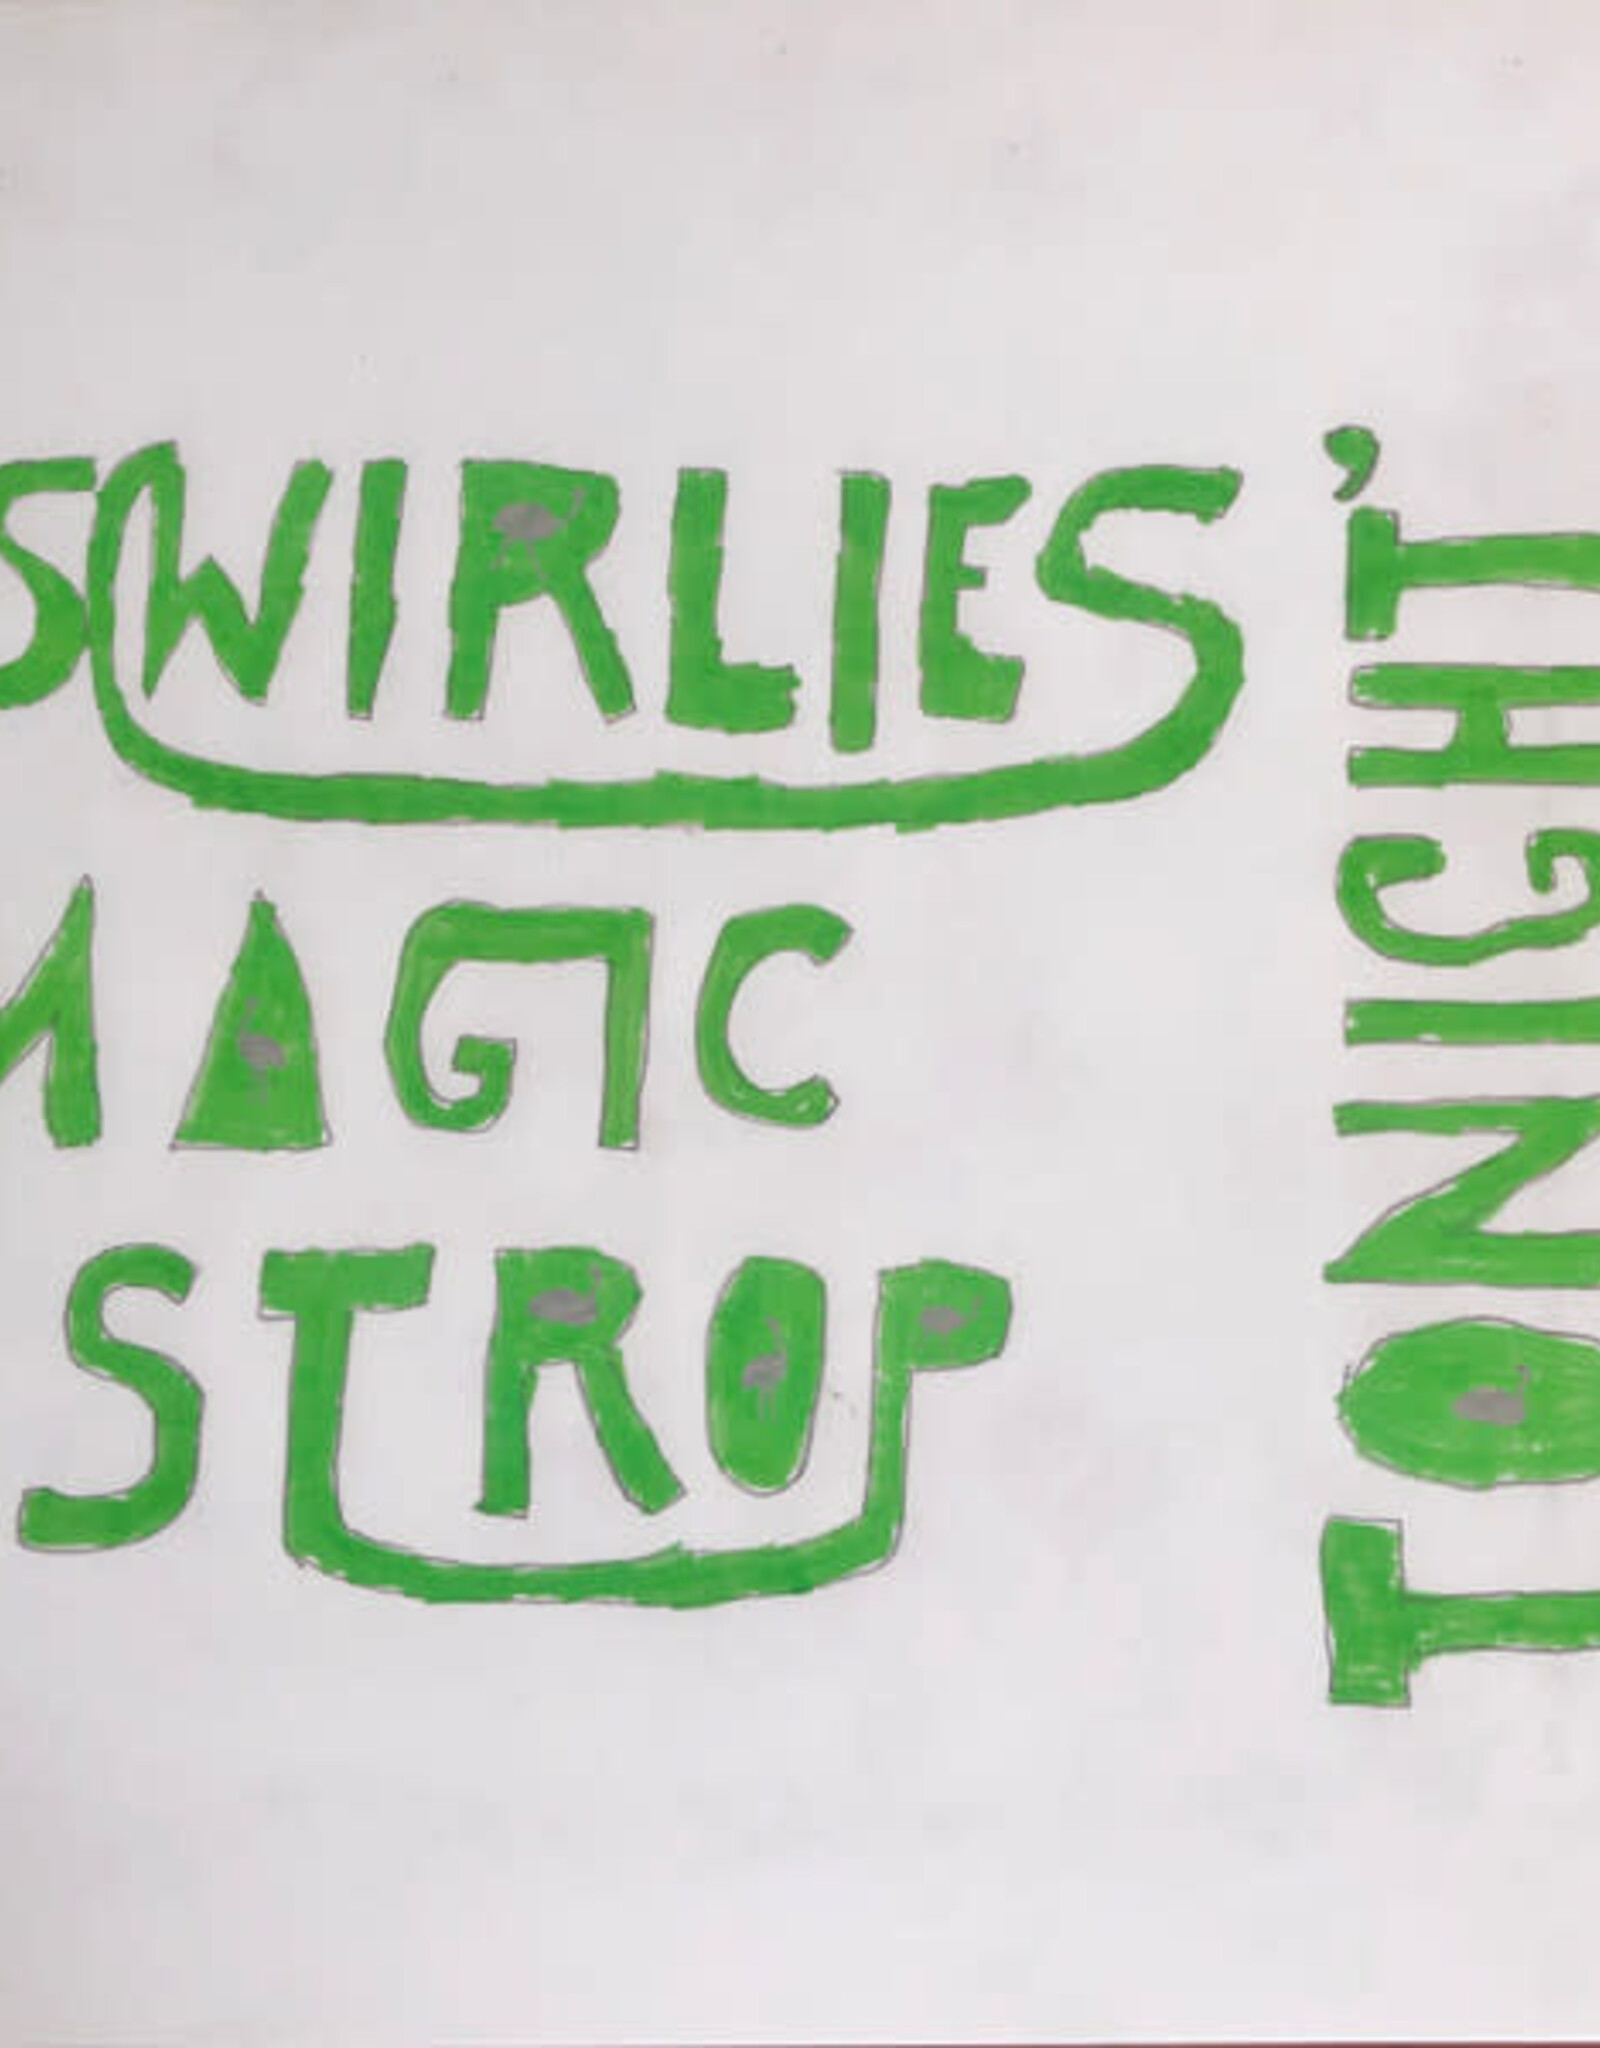 SWIRLIES
MAGIC
STROP
'TONIGHT'